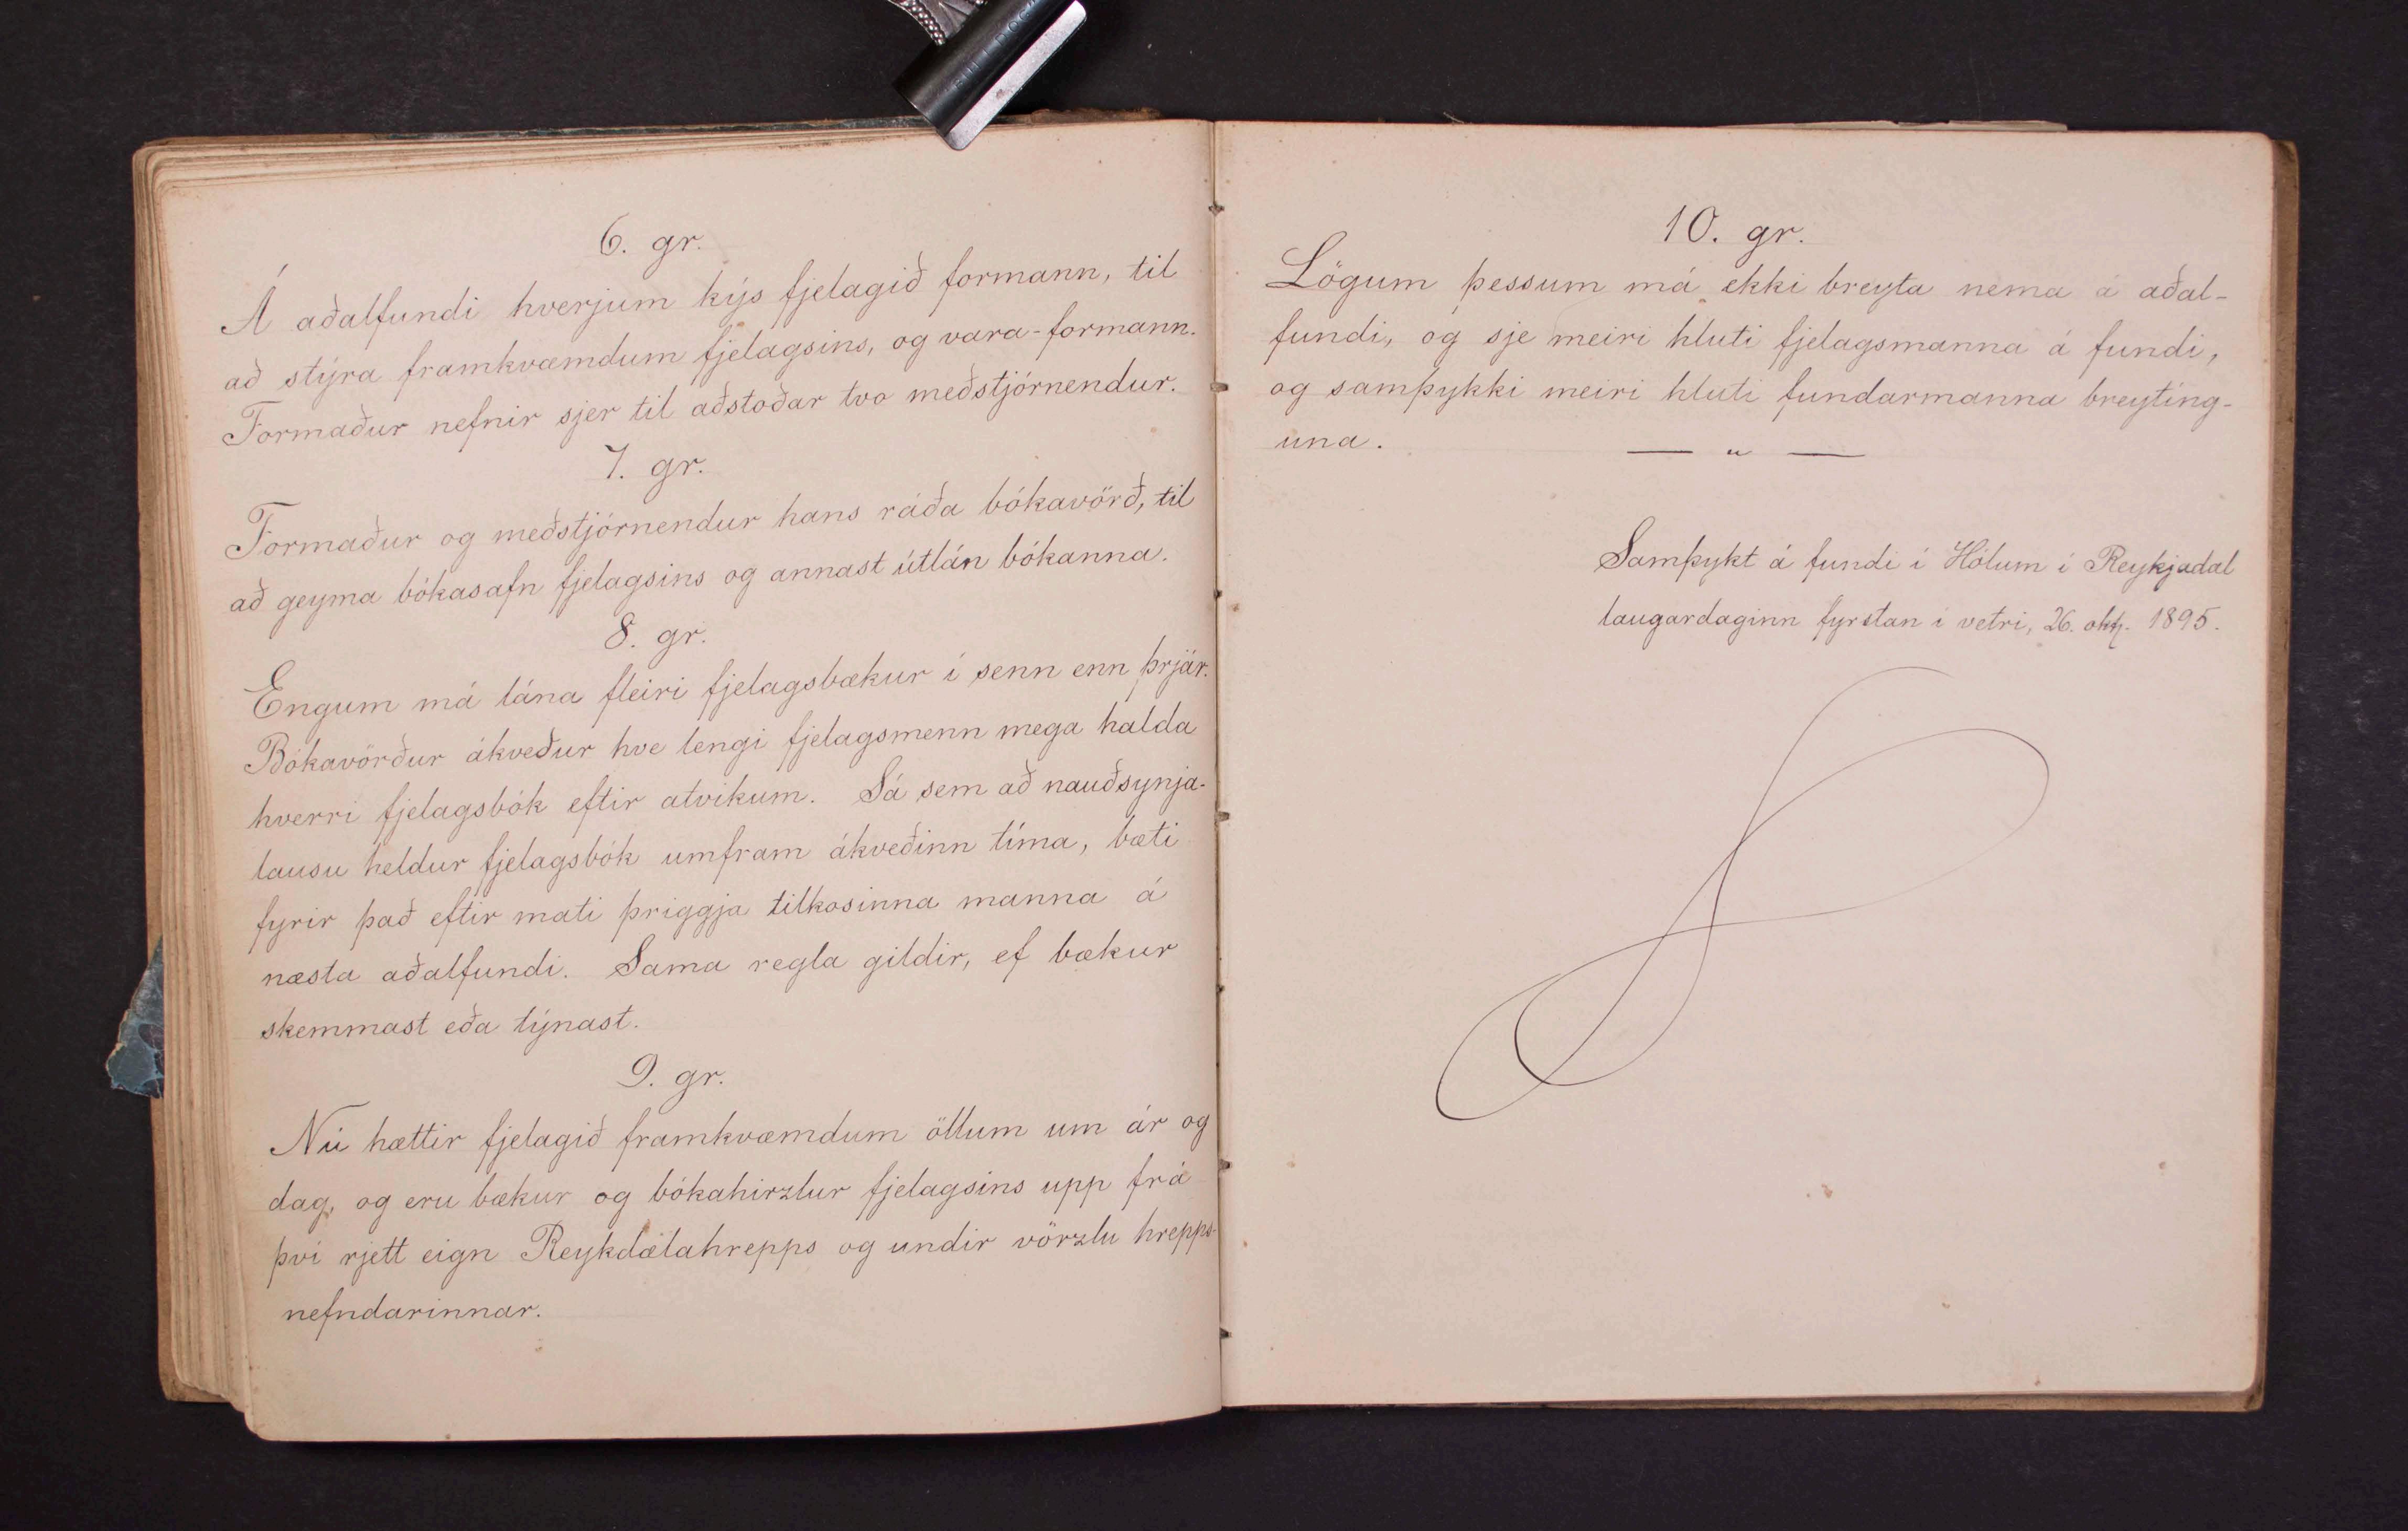 6. gr.
Á aðalfundi hverjum kýs fjelagið formann, til
að stýra framkvæmdum fjelagsins, og vara-formann.
Formaður nefnir sjer til aðstoðar tvo meðstjórnendur.
7. gr.
Formaður og meðstjórnendur hans ráða bókavörð, til
að geyma bókasafn fjelagsins og annast útlán bókanna.
8. gr.
Engum má lána fleiri fjelagsbækur í senn enn þrjár.
Bókavörður ákveður hve lengi fjelagsmenn mega halda
hverri fjelagsbók eftir atvikum. Sá sem að nauðsynja-
lausu heldur fjelagsbók umfram ákveðinn tíma, bæti
fyrir það eftir mati þriggja tilkosinna manna á
næsta aðalfundi. Sama regla gildir, ef bækur
skemmast eða týnast.
9. gr.
Nú hættir fjelagið framkvæmdum öllum um ár og
dag, og eru bækur og bókahirzlur fjelagsins upp frá
því rjett eign Reykdælahrepps og undir vörzlu hrepps-
nefndarinnar.
10. gr.
Lögum þessum má ekki breyta nema á aðal-
fundi, og sje meiri hluti fjelagsmanna á fundi,
og samþykki meiri hluti fundarmanna breyting-
una.
— " —
Samþykt á fundi í Hólum í Reykjadal
laugardaginn fyrstan í vetri, 26. okt. 1895.